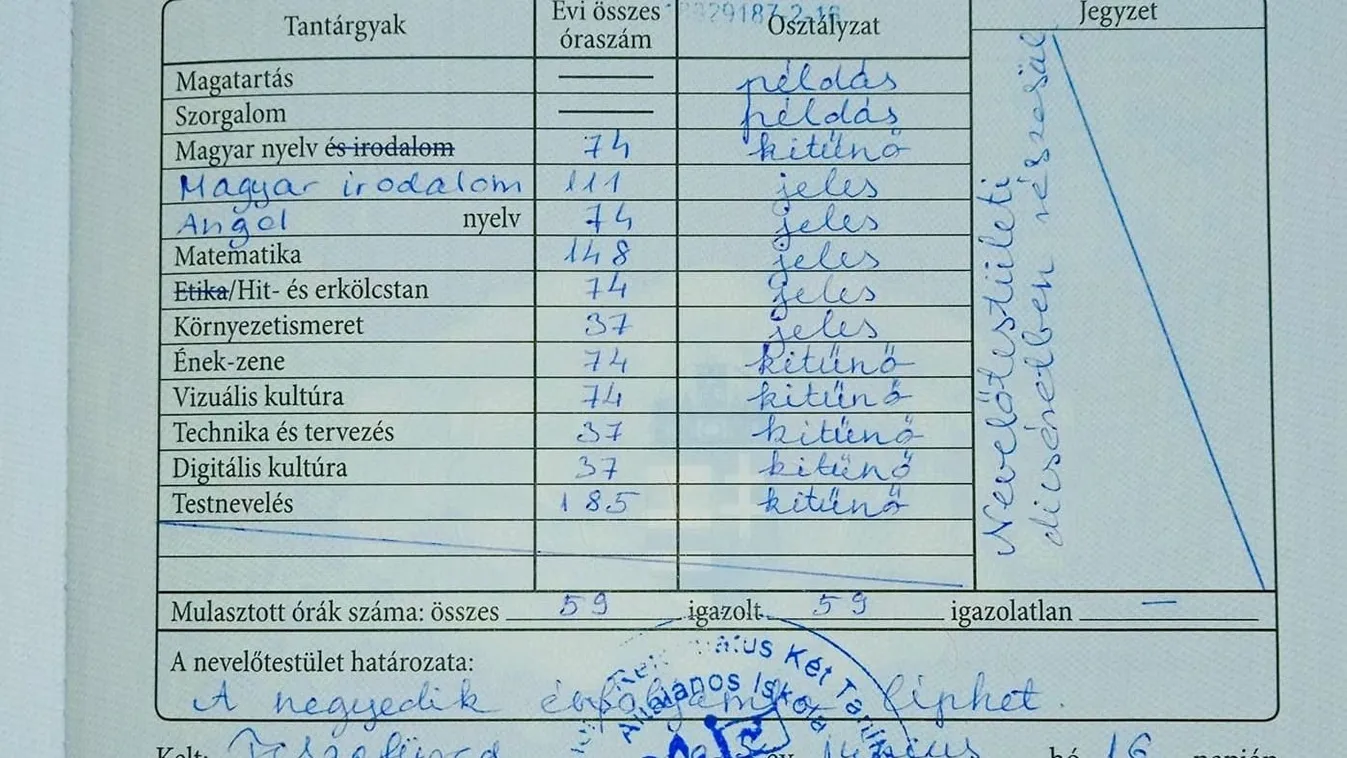 Tantárgyak Évi összes óraszám Osztályzat Jegyzet
Magatartás — példás
Szorgalom — példás
Magyar nyelv és irodalom 74 kitűnő
Magyar irodalom 111 jeles
Angol nyelv 74 jeles
Matematika 148 jeles
Etika/Hit- és erkölcstan 74 jeles
Környezetismeret 37 jeles
Ének-zene 74 kitűnő
Vizuális kultúra 74 kitűnő
Technika és tervezés 37 kitűnő
Digitális kultúra 37 kitűnő
Testnevelés 185 kitűnő
Nevelőtestületi
dicséretben részesül
Mulasztott órák száma: összes 59 igazolt 59 igazolatlan —
A nevelőtestület határozata:
A negyedik évfolyamba léphet.
Két Tanítási
Általános Iskola
Kelt: Tiszafüred év június hó 16 napján